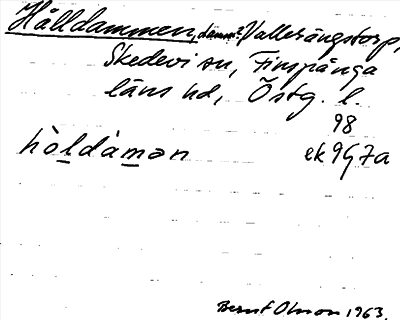 Hålldammen, damm? Vallerängstorp,
Skedevi sn, Finspånga
läns hd, Östg. l.
98
hòldàmən ek 9G7a
Bernt Olsson 1963.